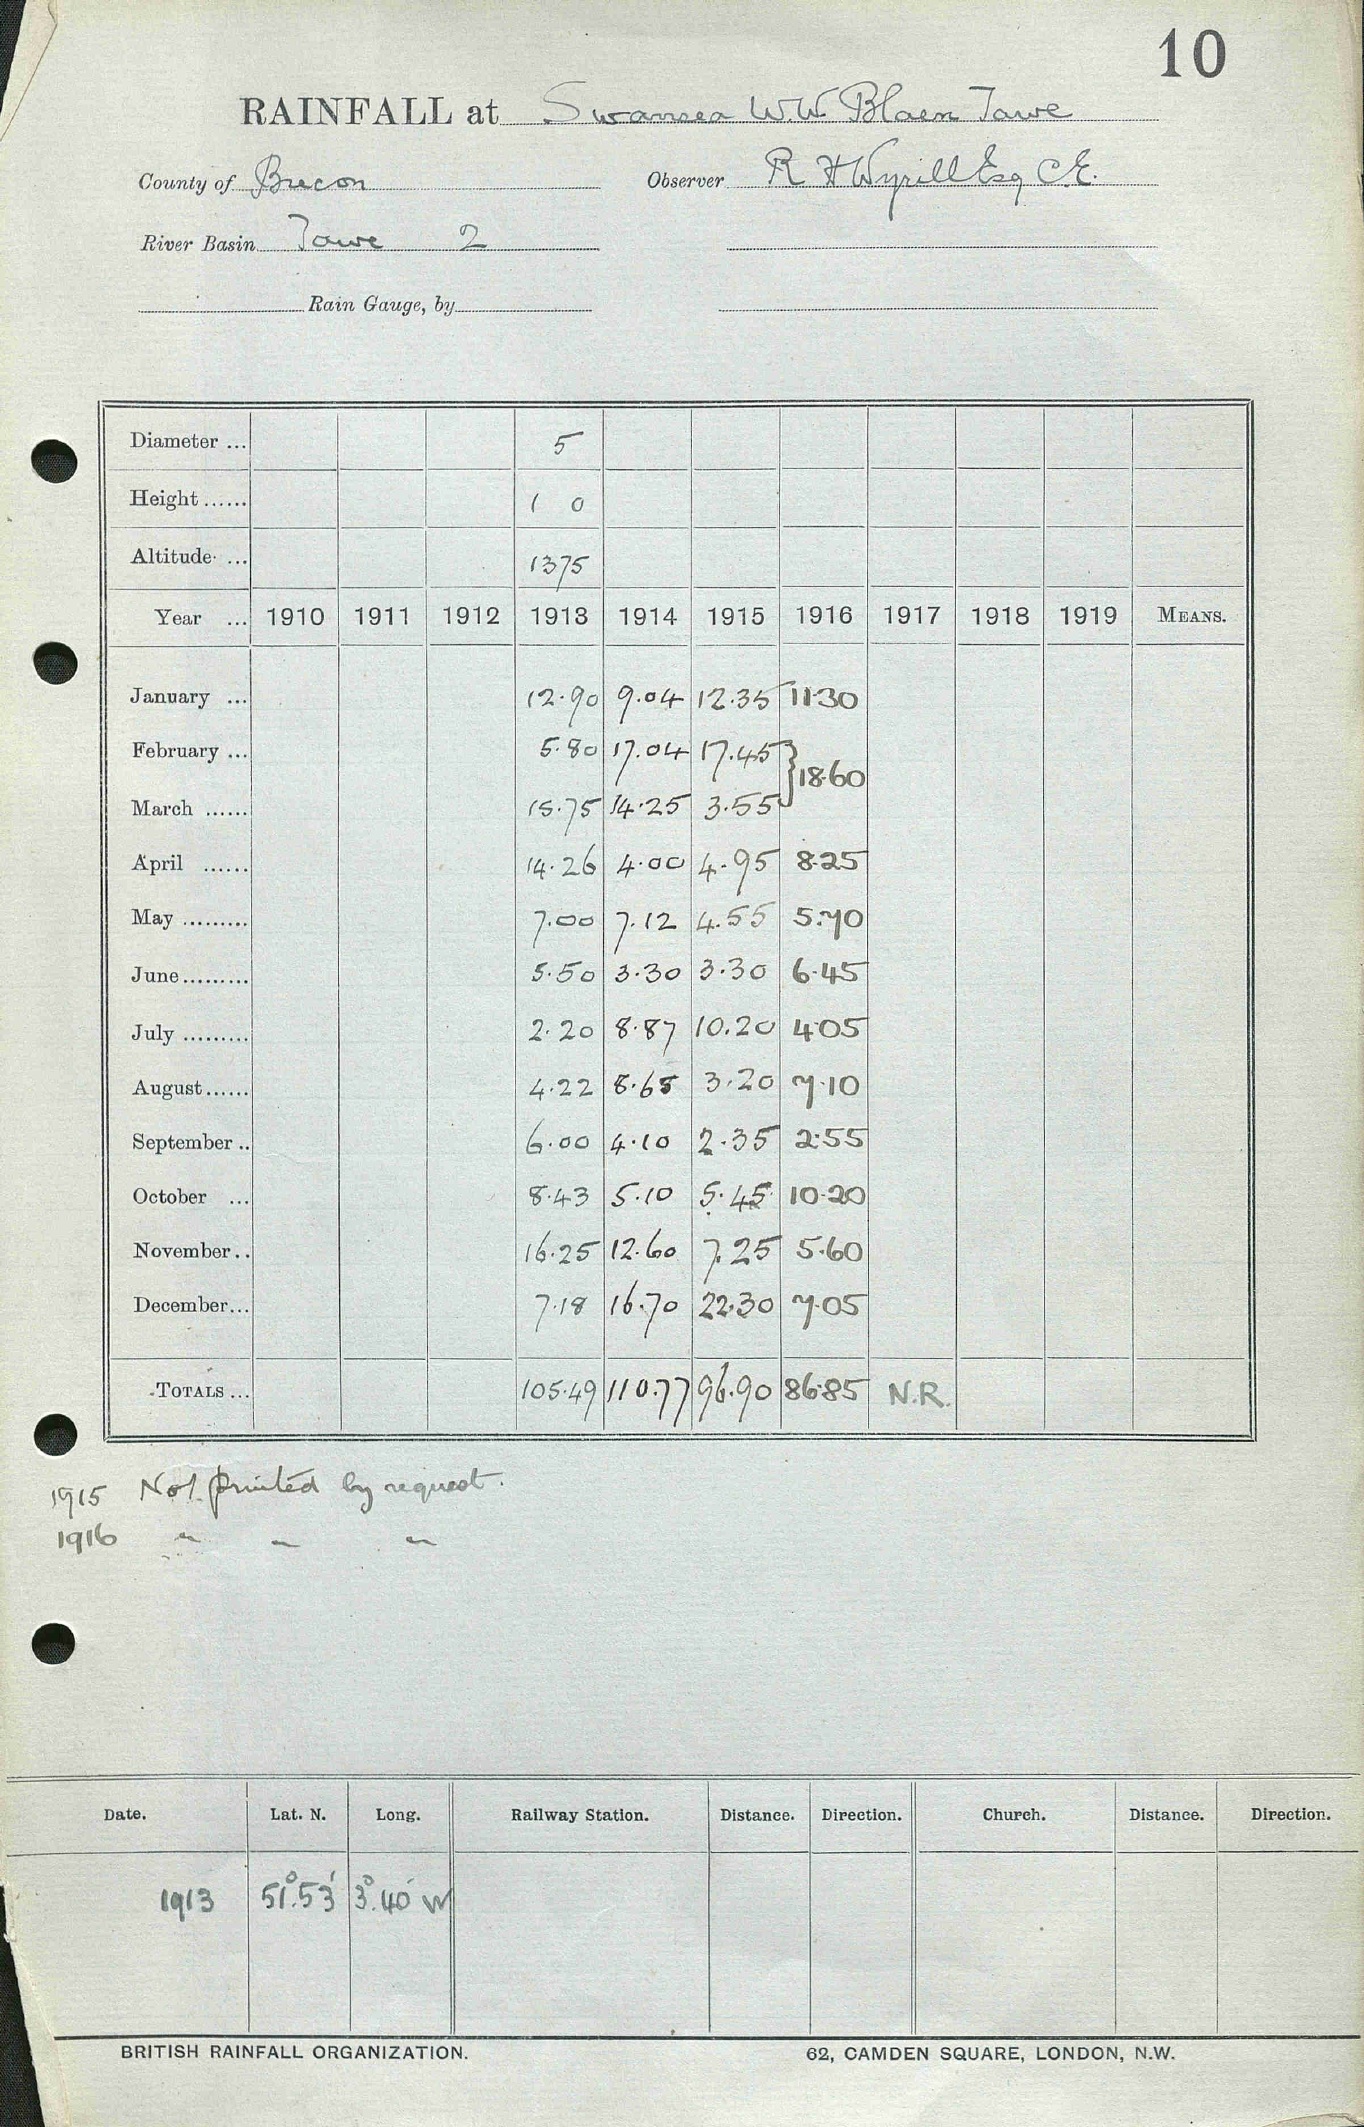 10
RAINFALL at Swansea W.W. Blaen Tawe
County of Brecon Observer R H Wyrill Esq C.E.
River Basin Tawe 2
Rain Gauge, by
Diameter ... 5
Height ...... 1 0
Altitude ... 1375
Year ... 1910 1911 1912 1913 1914 1915 1916 1917 1918 1919 MEANS.
January ... 12.90 9.04 12.35 11.30
February ... 5.80 17.04 17.45 } 18.60
March ...... 15.75 14.25 3.55
April ...... 14.26 4.00 4.95 8.25
May ......... 7.00 7.12 4.55 5.70
June ......... 5.50 3.30 3.30 6.45
July ......... 2.20 8.87 10.20 4.05
August ...... 4.22 8.65 3.20 7.10
September .. 6.00 4.10 2.35 2.55
October ... 8.43 5.10 5.45 10.20
November .. 16.25 12.60 7.25 5.60
December ... 7.18 16.70 22.30 7.05
TOTALS ... 105.49 110.77 96.90 86.85 N.R.
1915 Not printed by request.
1916 " " "
Date. Lat. N. Long. Railway Station. Distance. Direction. Church. Distance. Direction.
1913 51°.53' 3°.40' W
BRITISH RAINFALL ORGANIZATION. 62, CAMDEN SQUARE, LONDON, N.W.